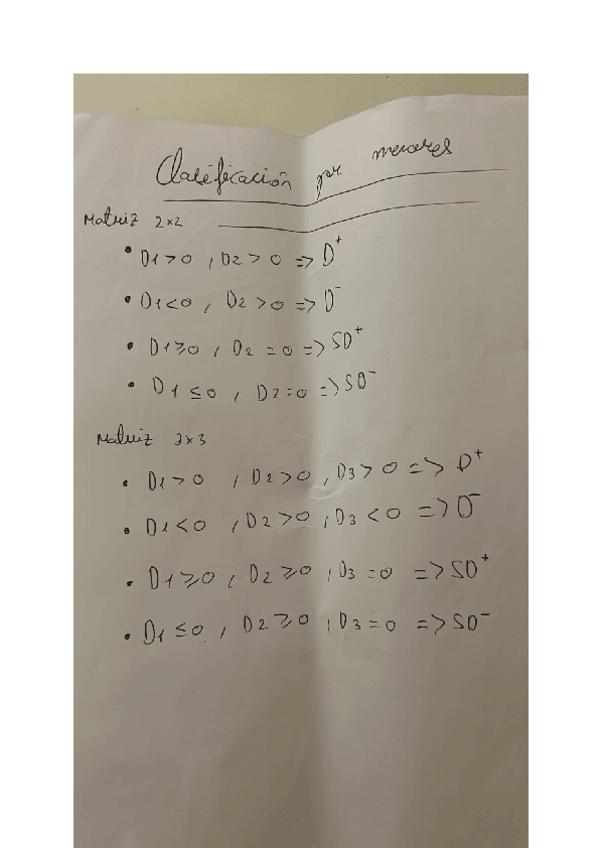 Clasificación por menores
Matriz 2x2
• D1>0 , D2>0 => D⁺
• D1<0 , D2>0 => D⁻
• D1≥0 , D2=0 => SD⁺
• D1≤0 , D2=0 => SD⁻
Matriz 3x3
• D1>0 , D2>0 , D3>0 => D⁺
• D1<0 , D2>0 , D3<0 => D⁻
• D1≥0 , D2≥0 , D3=0 => SD⁺
• D1≤0 , D2≥0 , D3=0 => SD⁻